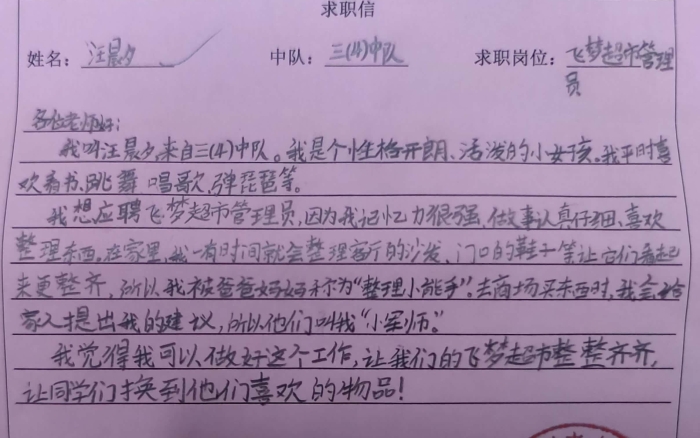 求职信
姓名：汪晨夕 中队：三(4)中队 求职岗位：飞梦超市管理
员
各位老师好：
我叫汪晨夕，来自三(4)中队。我是个性格开朗、活泼的小女孩。我平时喜
欢看书、跳舞、唱歌、弹琵琶等。
我想应聘飞梦超市管理员，因为我记忆力很强、做事认真仔细、喜欢
整理东西，在家里，我一有时间就会整理客厅的沙发、门口的鞋子等让它们看起
来更整齐，所以我被爸爸妈妈称为“整理小能手”。去商场买东西时，我会给
家人提出我的建议，所以他们叫我“小军师”。
我觉得我可以做好这个工作，让我们的飞梦超市整整齐齐，
让同学们换到他们喜欢的物品！